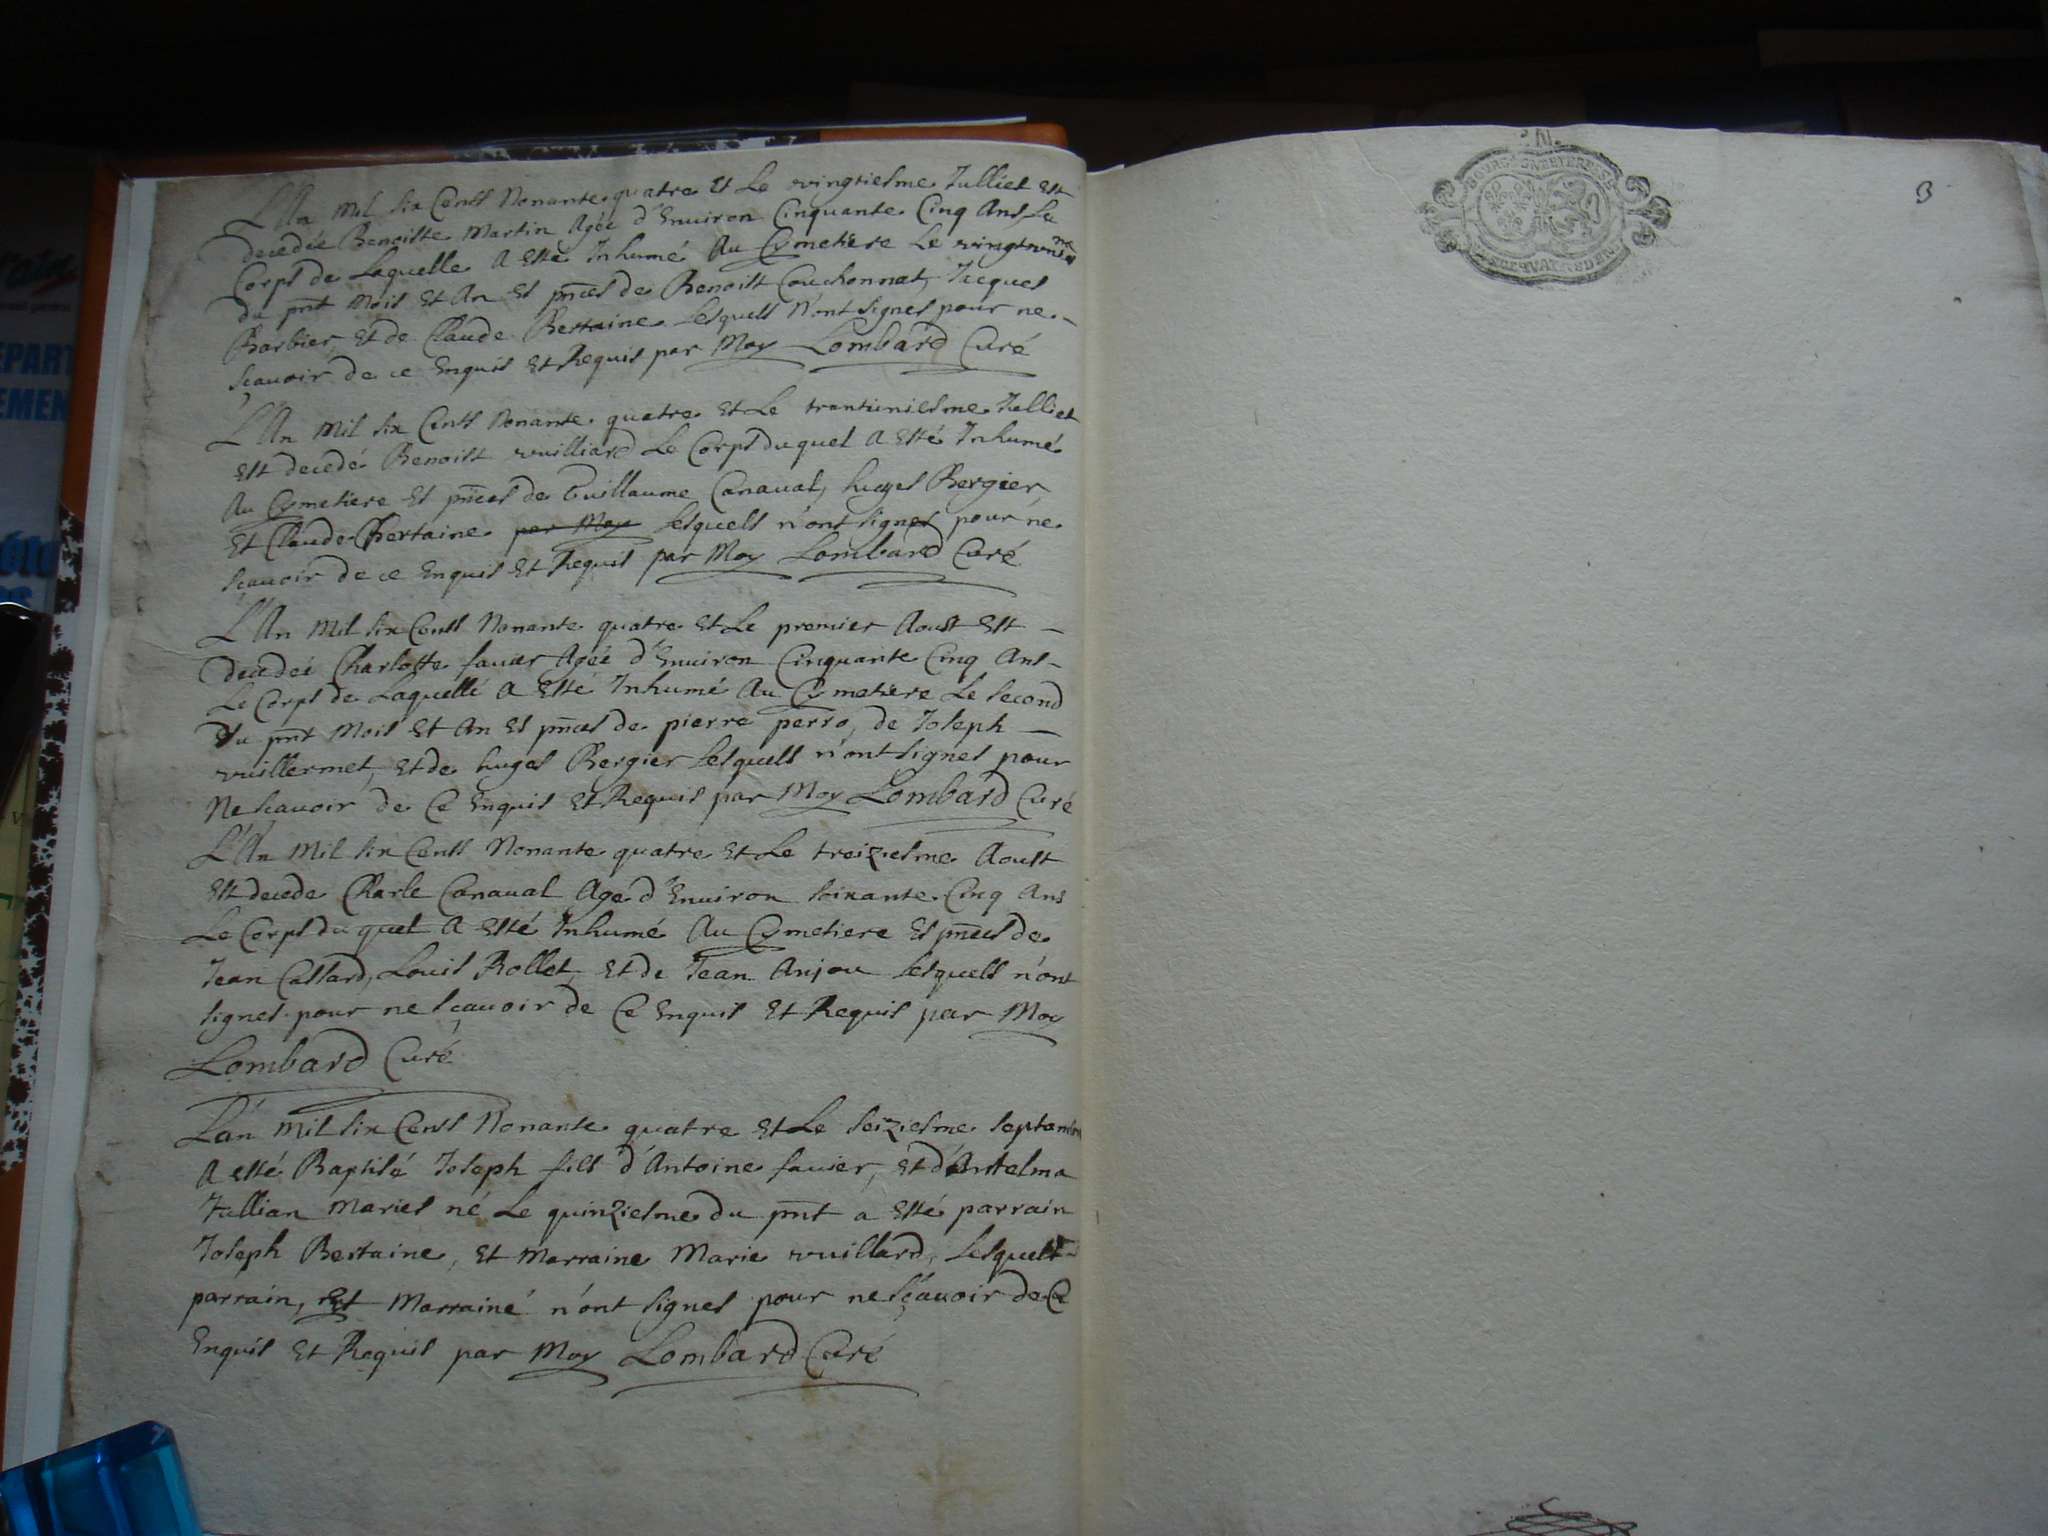 L'An mil six Cents Nonante quatre et Le vingtiesme Julliet est
decedée Benoiste Martin Agée d'Environ Cinquante Cinq Ans, Le
Corps de Laquelle a esté Inhumé Au Cymetiere Le vingtunie me
du pnt Mois et An es pnces de Benoist Couchonnat, Jacques
Barbier, et de Claude Bertaine Lesquels N'ont signes pour ne -
sçavoir de ce Enquis et Requis par Moy Lombard Curé
L'An mil six Cents Nonante quatre et Le trantuniesme Julliet
est decedé Benoist vuilliard Le Corps duquel a esté Inhumé
Au Cymetiere es pnces de Guillaume Canaval, hugues Bergier,
et Claude Bertaine par Moy Lesquels n'ont signes pour ne
sçavoir de ce Enquis et Requis par Moy Lombard Curé
L'An Mil six Cents Nonante quatre et Le premier Aoust est -
decedeé Charlotte favier Agée d'Environ Cinquante Cinq Ans -
Le Corps de Laquelle a esté Inhumé Au Cymetiere Le second
du pnt Mois et An es pnces de pierre perro, de Joseph -
vuillermet, et de huges Bergier Lesquels n'ont signes pour
Ne sçavoir de Ce Enquis et Requis par Moy Lombard Curé
L'An Mil six Cents Nonante quatre et Le treiziesme Aoust
est decede Charle Canaval Agé d'Environ soixante Cinq Ans
Le Corps du quel a esté Inhumé Au Cymetiere es pnces de
Jean Castard, Louis Rollet, et de Jean Anjou Lesquels n'ont
signes pour ne sçavoir de Ce Enquis et Requis par Moy
Lombard Curé
L'an mil six Cents Nonante quatre et Le seiziesme septembre
a esté Baptisé Joseph fils d'Antoine favier, et d'Antelma
Jullian Mariés né Le quinziesme du pnt a esté parrain
Joseph Bertaine, et Marraine Marie vuillard, Lesquels
parrain, et Marraine n'ont signes pour ne sçavoir de Ce
Enquis et Requis par Moy Lombard Curé
3